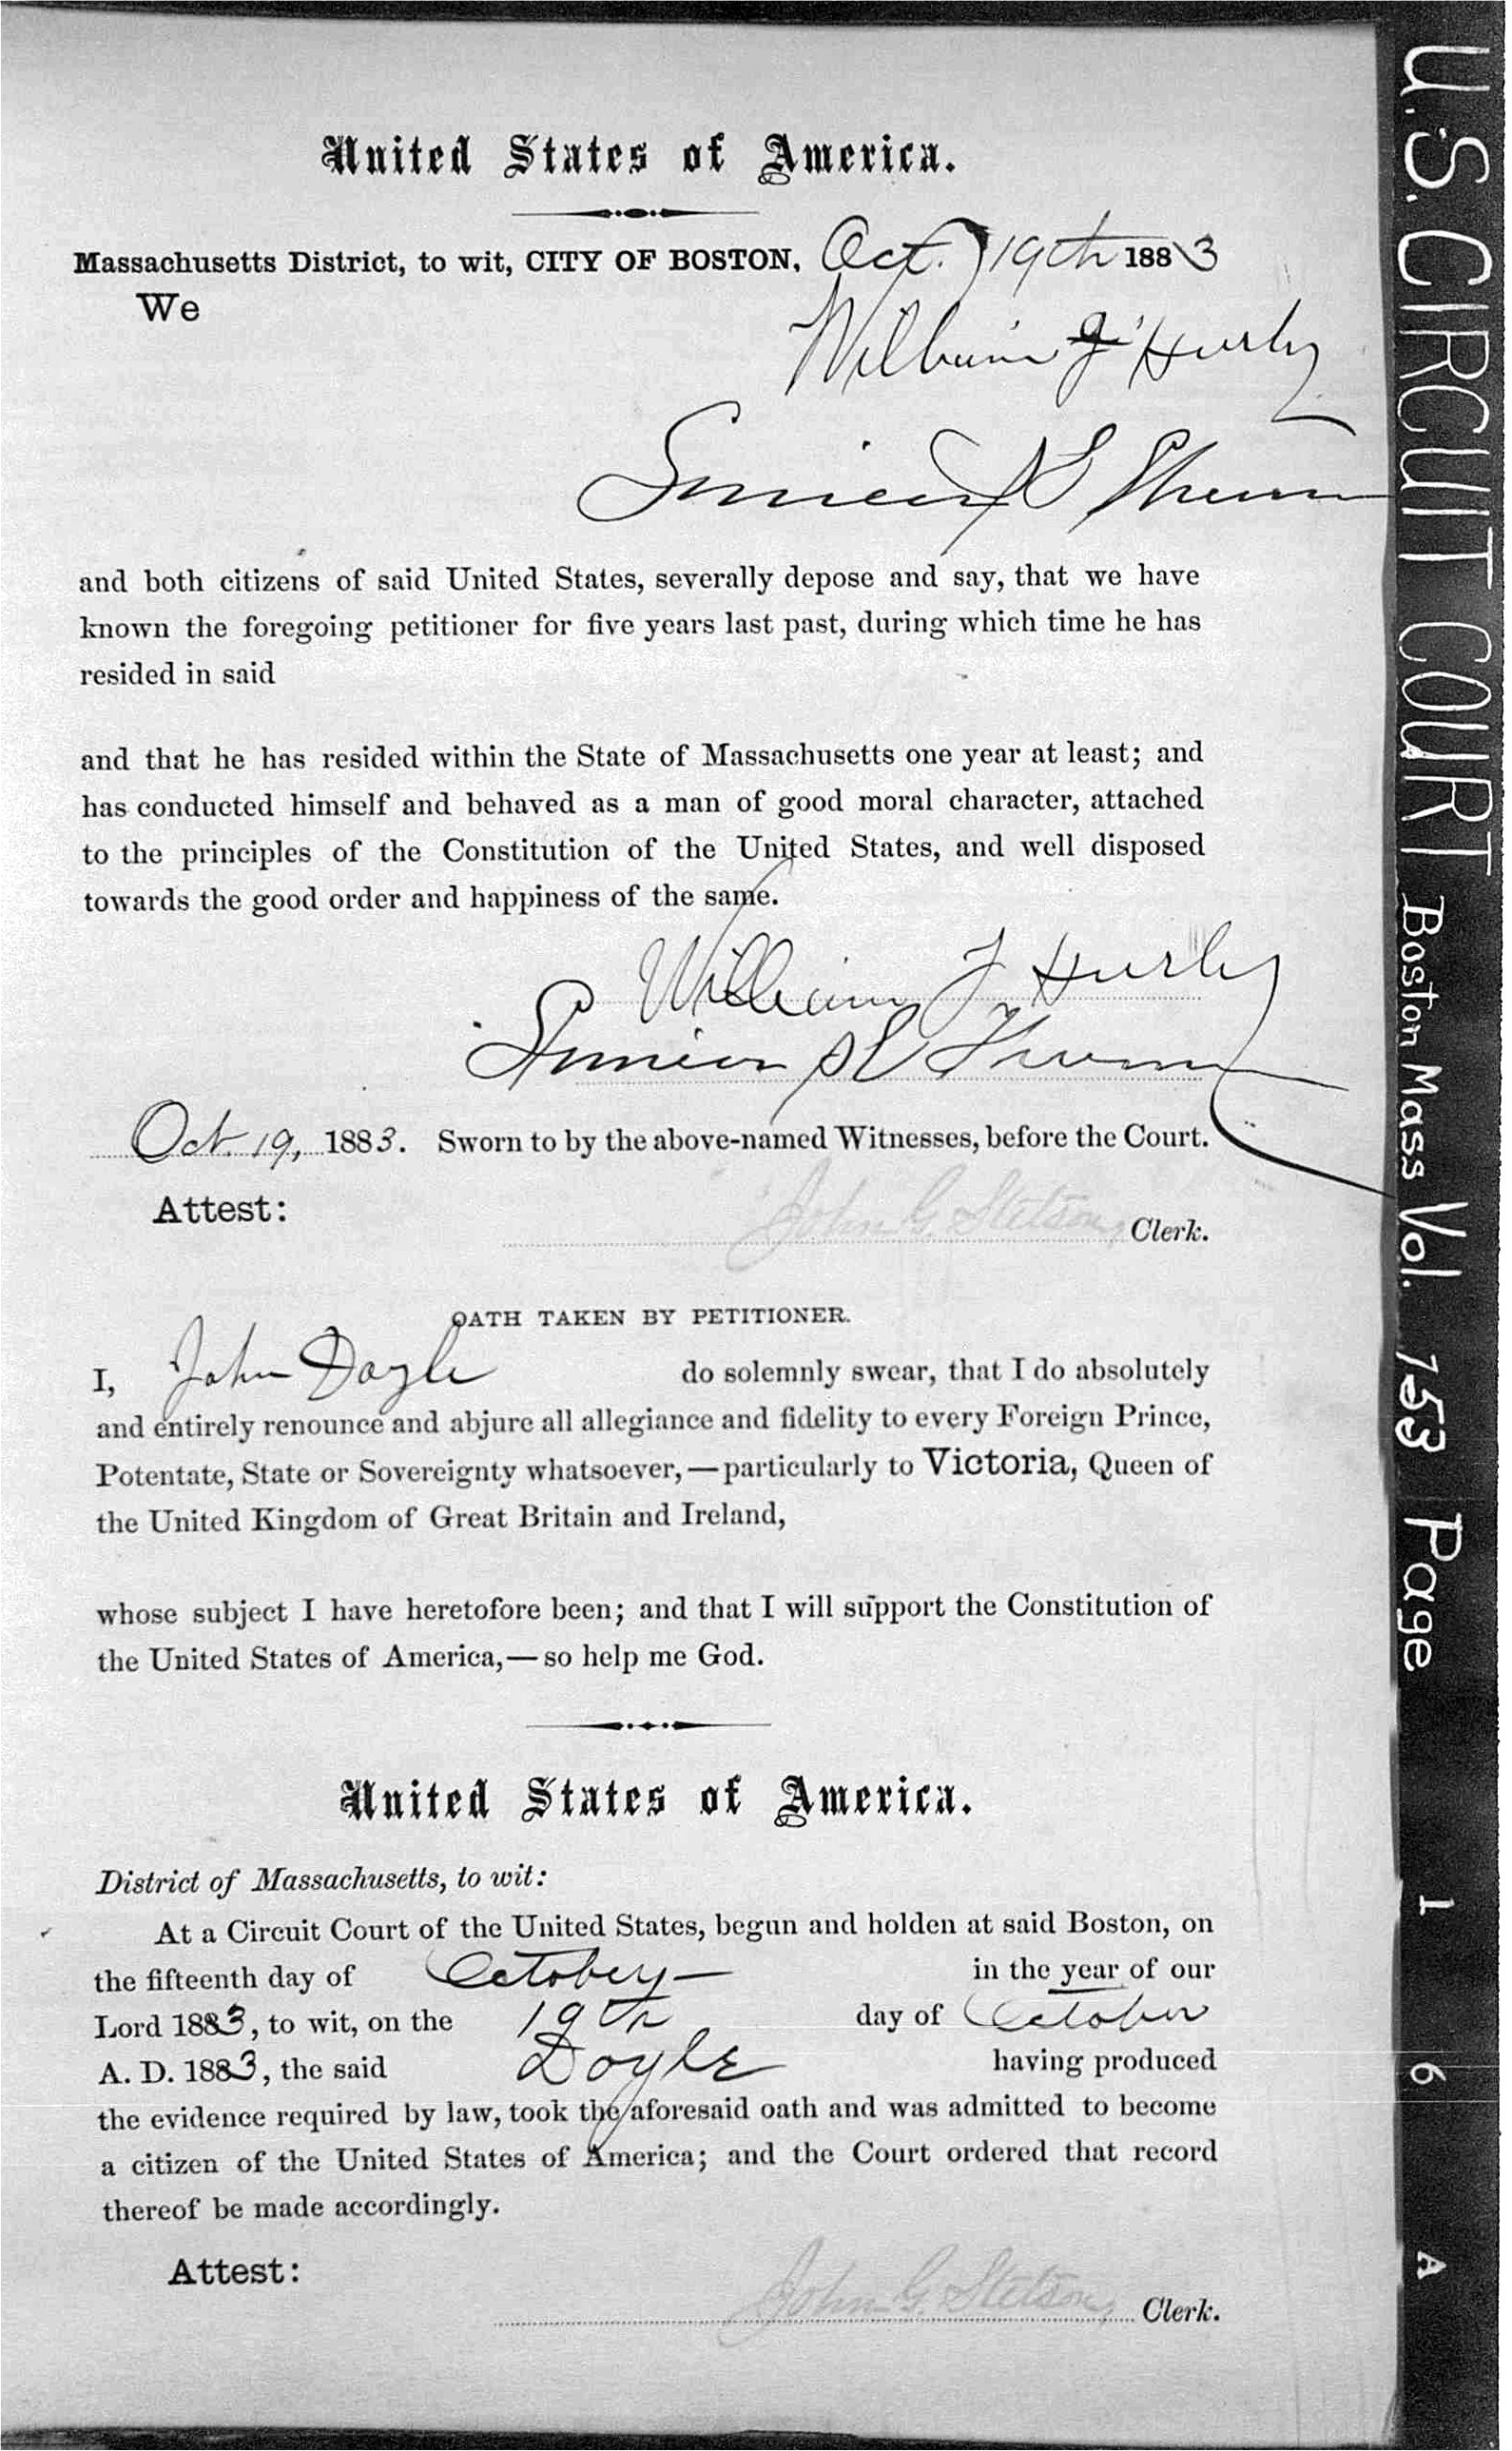 United States of America.
Massachusetts District, to wit, CITY OF BOSTON, Oct. 19th 1883
We
William J Hurly
and both citizens of said United States, severally depose and say, that we have
known the foregoing petitioner for five years last past, during which time he has
resided in said
and that he has resided within the State of Massachusetts one year at least; and
has conducted himself and behaved as a man of good moral character, attached
to the principles of the Constitution of the United States, and well disposed
towards the good order and happiness of the same.
William J Hurly
Oct. 19, 1883. Sworn to by the above-named Witnesses, before the Court.
Attest:
John G. Stetson, Clerk.
OATH TAKEN BY PETITIONER.
I, John Doyle do solemnly swear, that I do absolutely
and entirely renounce and abjure all allegiance and fidelity to every Foreign Prince,
Potentate, State or Sovereignty whatsoever,—particularly to Victoria, Queen of
the United Kingdom of Great Britain and Ireland,
whose subject I have heretofore been; and that I will support the Constitution of
the United States of America,—so help me God.
United States of America.
District of Massachusetts, to wit:
At a Circuit Court of the United States, begun and holden at said Boston, on
the fifteenth day of October in the year of our
Lord 1883, to wit, on the 19th day of October
A. D. 1883, the said Doyle having produced
the evidence required by law, took the aforesaid oath and was admitted to become
a citizen of the United States of America; and the Court ordered that record
thereof be made accordingly.
Attest:
John G. Stetson, Clerk.
U.S. CIRCUIT COURT Boston Mass Vol. 153 Page 1 6 A